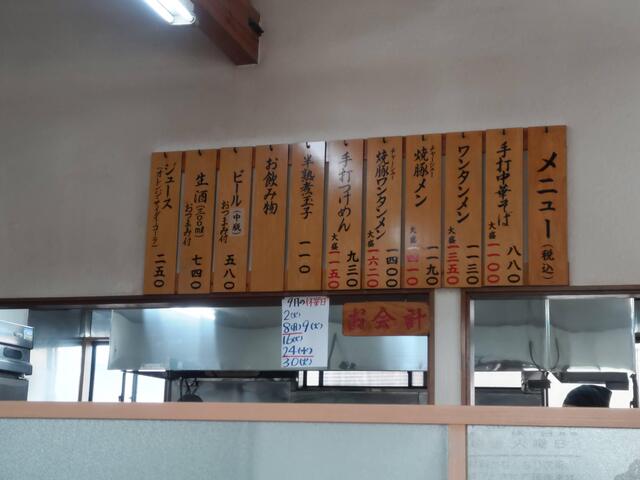 メニュー（税込）
手打中華そば 八八〇
大盛 一一〇〇
ワンタンメン 一一三〇
大盛 一三五〇
チャーシュー
焼豚メン 一一九〇
大盛 一四一〇
チャーシュー
焼豚ワンタンメン 一四〇〇
大盛 一六二〇
手打つけめん 九三〇
大盛 一一五〇
半熟煮玉子 一一〇
お飲み物
ビール（中瓶） おつまみ付 五八〇
生酒（300ml） おつまみ付 七四〇
ジュース（オレンジ・サイダー・コーラ） 二五〇
9月の休業日
2(火)
8(月)9(火)
16(火)
24(水)
30(火)
お会計
火曜日